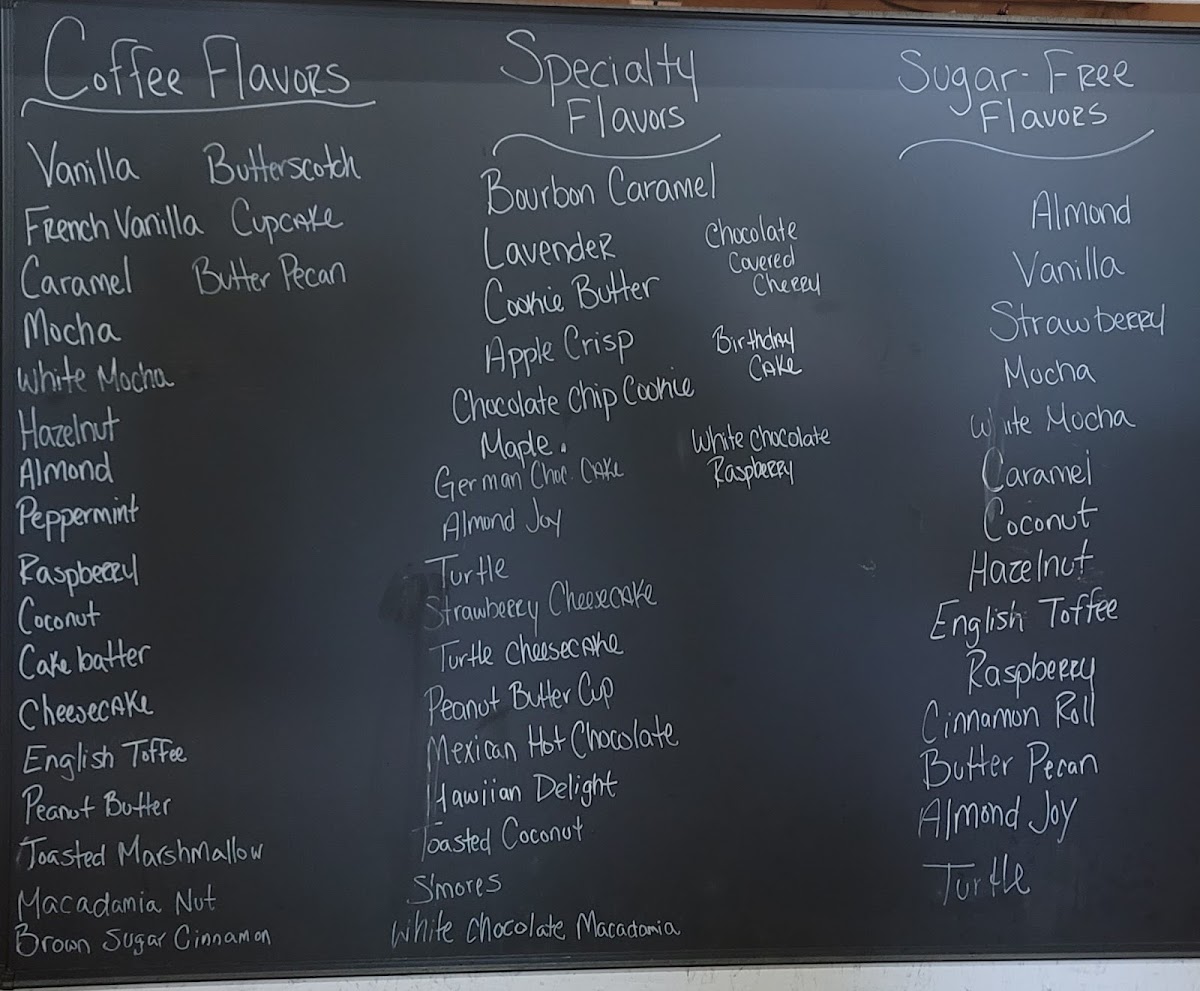 Coffee Flavors
Vanilla
French Vanilla
Caramel
Mocha
White Mocha
Hazelnut
Almond
Peppermint
Raspberry
Coconut
Cake batter
Cheesecake
English Toffee
Peanut Butter
Toasted Marshmallow
Macadamia Nut
Brown Sugar Cinnamon
Butterscotch
Cupcake
Butter Pecan
Specialty
Flavors
Bourbon Caramel
Lavender
Cookie Butter
Apple Crisp
Chocolate Chip Cookie
Maple.
German Choc. Cake
Almond Joy
Turtle
Strawberry Cheesecake
Turtle Cheesecake
Peanut Butter Cup
Mexican Hot Chocolate
Hawiian Delight
Toasted Coconut
S'mores
White Chocolate Macadamia
Chocolate
Covered
Cherry
Birthday
Cake
White Chocolate
Raspberry
Sugar-Free
Flavors
Almond
Vanilla
Strawberry
Mocha
White Mocha
Caramel
Coconut
Hazelnut
English Toffee
Raspberry
Cinnamon Roll
Butter Pecan
Almond Joy
Turtle